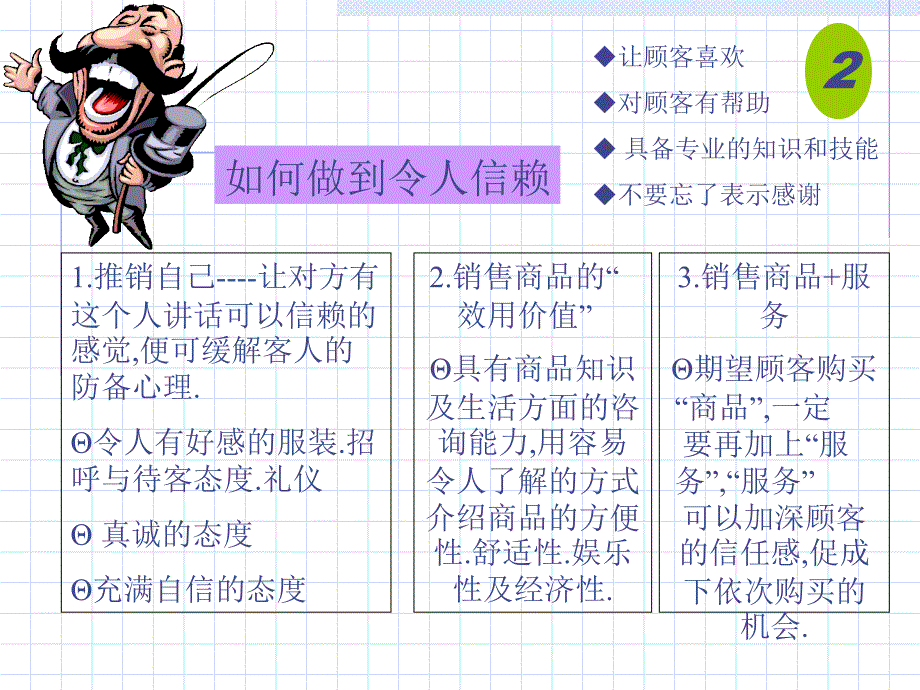 ◆让顾客喜欢
◆对顾客有帮助
◆ 具备专业的知识和技能
◆不要忘了表示感谢
2
如何做到令人信赖
1.推销自己----让对方有
这个人讲话可以信赖的
感觉,便可缓解客人的
防备心理.
Θ令人有好感的服装.招
呼与待客态度.礼仪
Θ 真诚的态度
Θ充满自信的态度
2.销售商品的“
效用价值”
Θ具有商品知识
及生活方面的咨
询能力,用容易
令人了解的方式
介绍商品的方便
性.舒适性.娱乐
性及经济性.
3.销售商品+服
务
Θ期望顾客购买
“商品”,一定
要再加上“服
务”,“服务”
可以加深顾客
的信任感,促成
下依次购买的
机会.